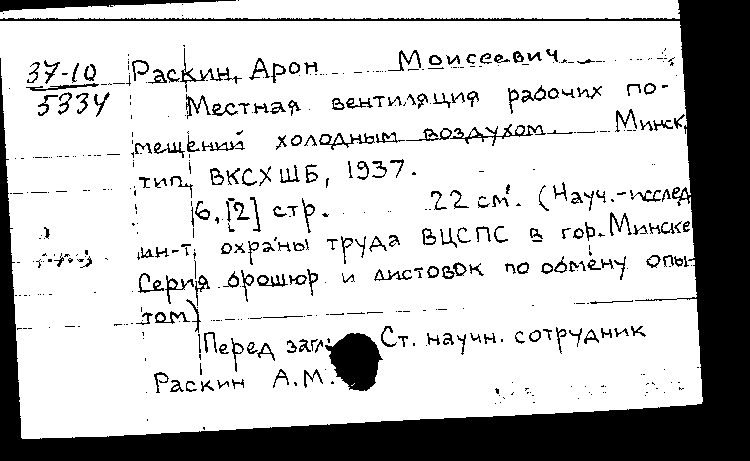 37-10
5334
Раскин, Арон Моисеевич.
Местная вентиляция рабочих по-
мещений холодным воздухом. Минск,
тип. ВКСХШБ, 1937.
6, [2] стр. 22 см. (Науч.-исслед
ин-т охраны труда ВЦСПС в гор. Минске
Серия брошюр и листовок по обмену опы-
том)
Перед загл: Ст. научн. сотрудник
Раскин А.М.